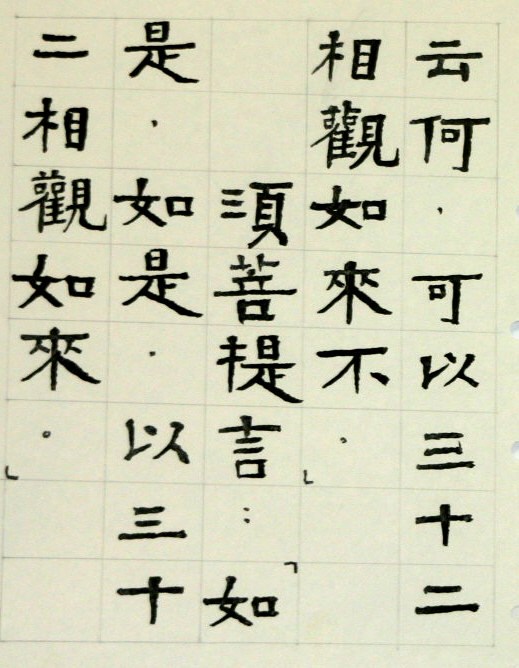 云何．可以三十二
相觀如來不．」
須菩提言：「如
是．如是．以三十
二相觀如來。」